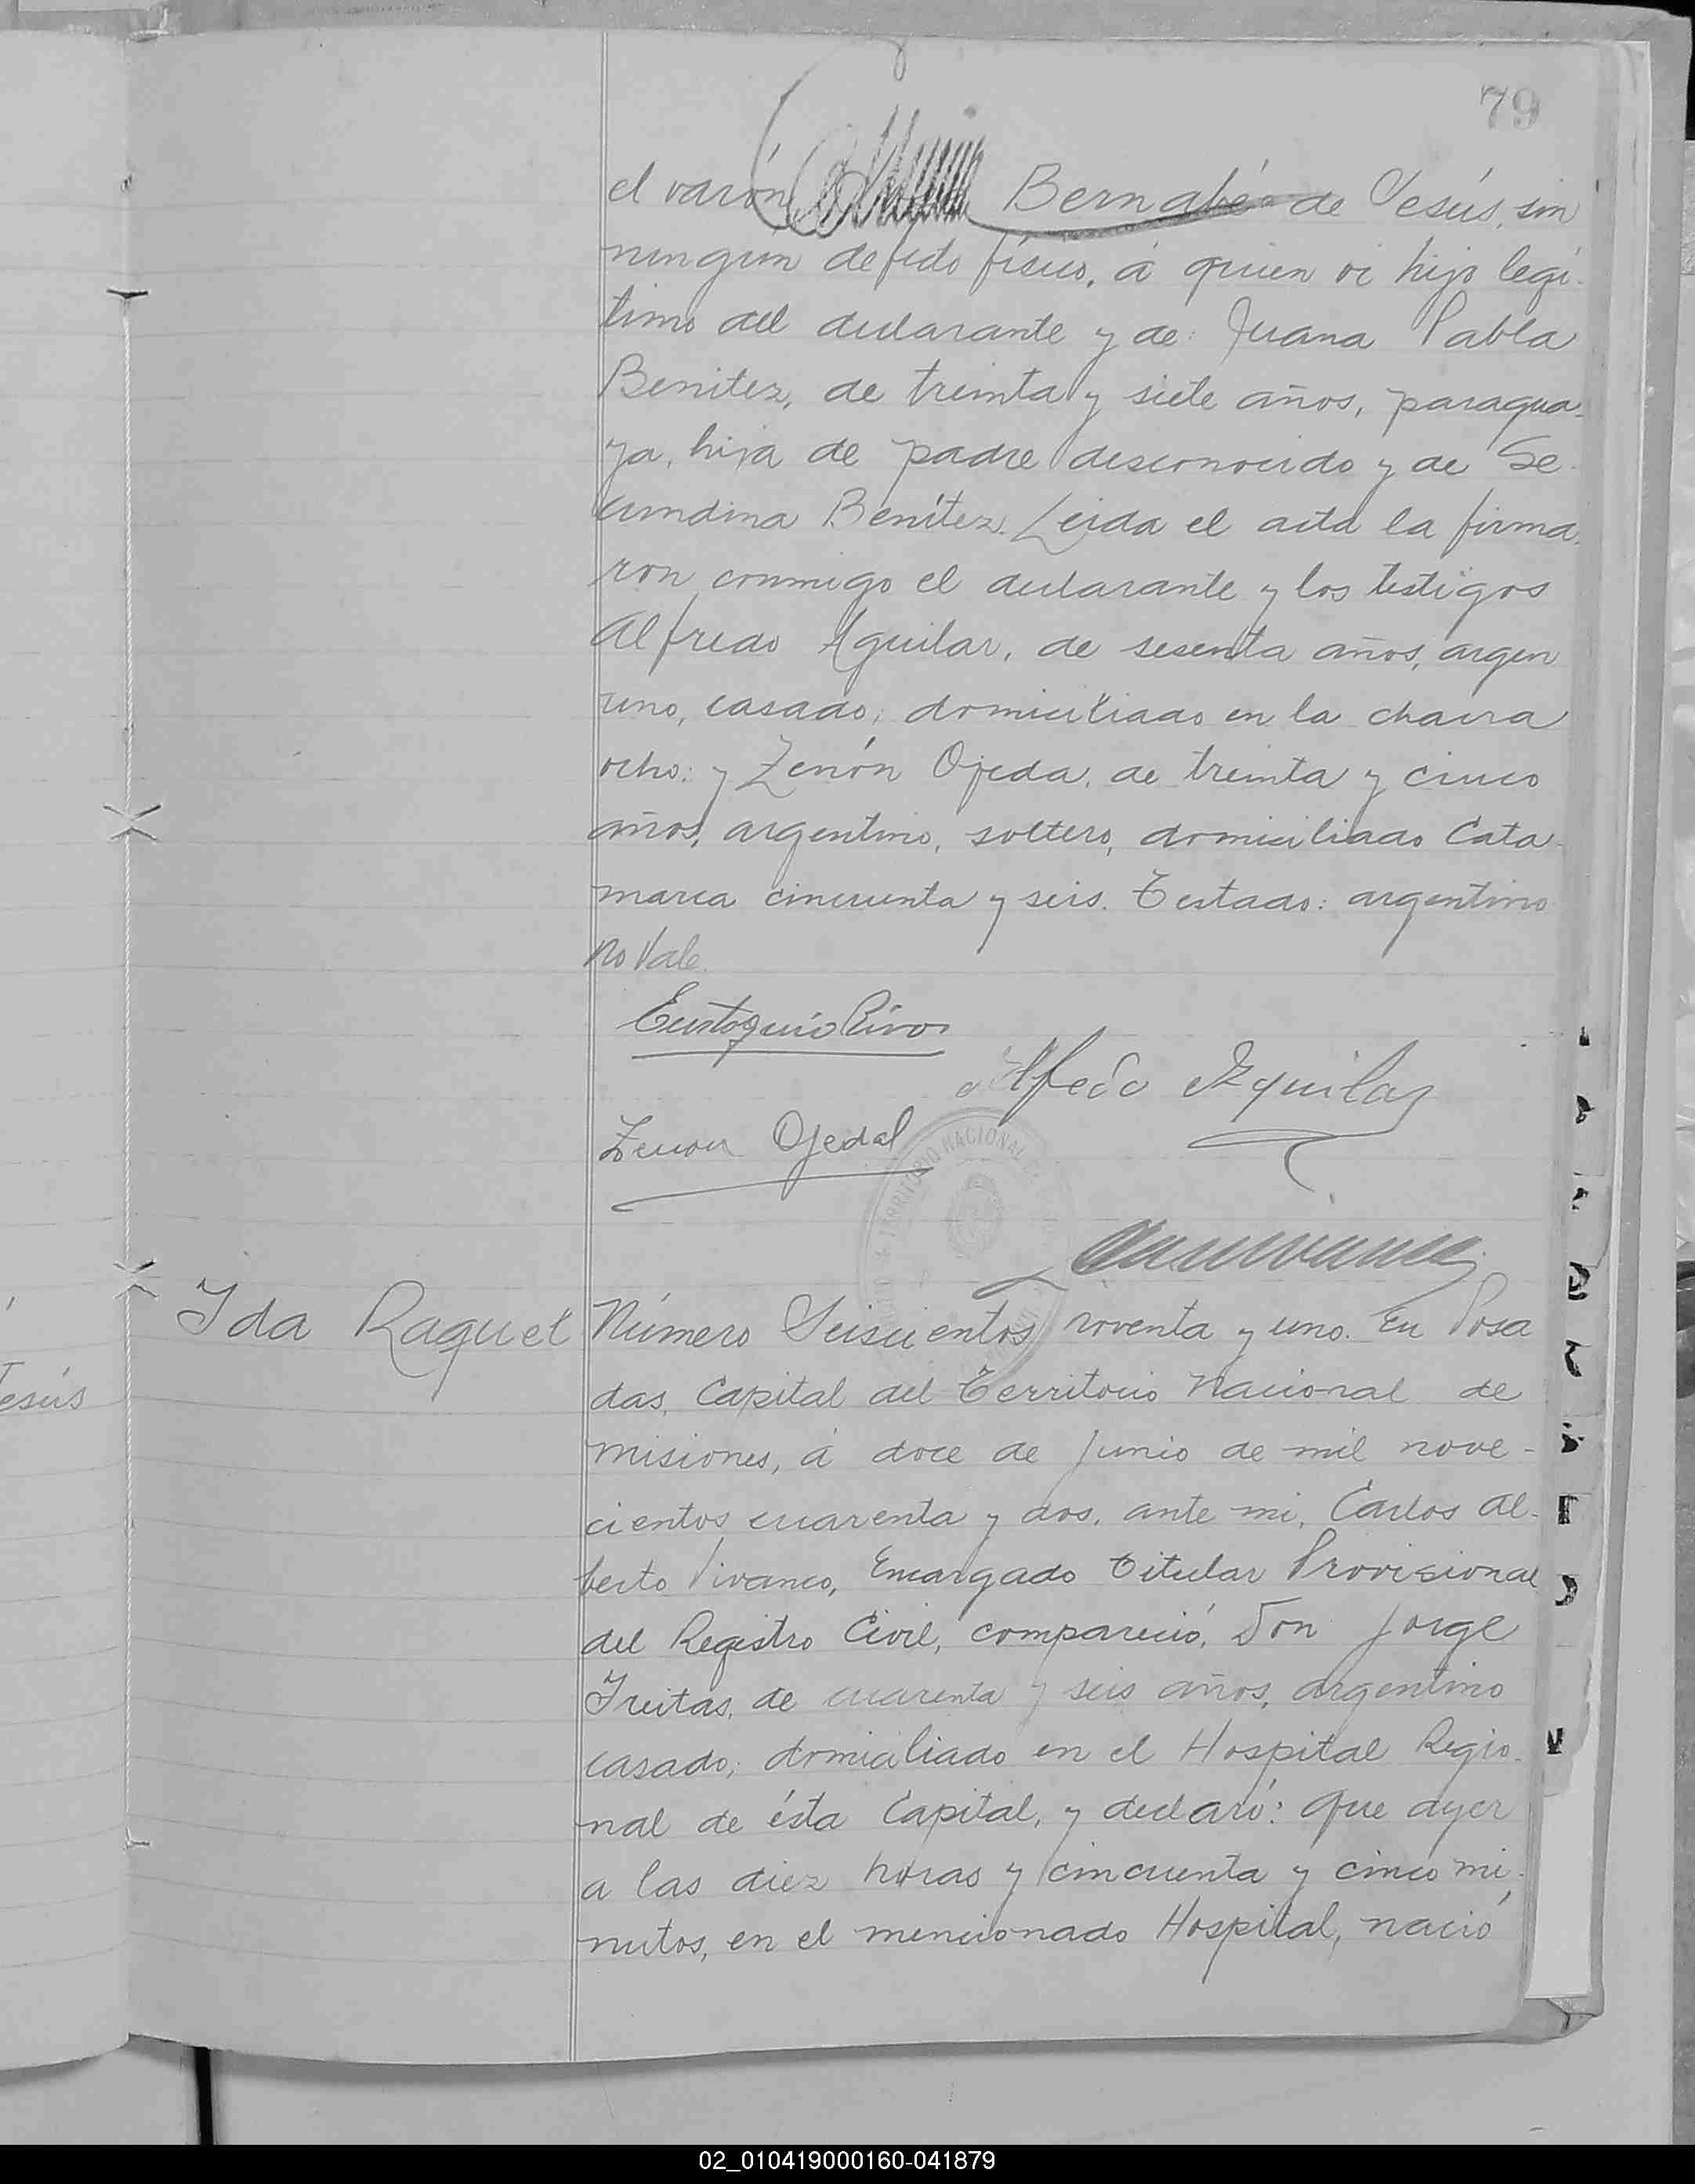 79
el varón Bernabé de Jesús, sin
ningún defecto físico, á quien vi hijo legi-
timo del declarante y de: Juana Pabla
Benitez, de treinta y siete años, paragua-
ya, hija de padre desconocido y de Se-
cundina Benítez. Leida el acta la firma-
ron conmigo el declarante y los testigos
Alfredo Aguilar, de sesenta años, argen
tino, casado, domiciliado en la chacra
ocho: y Zenón Ojeda, de treinta y cinco
años, argentino, soltero, domiciliado Cata-
marca cincuenta y seis. Testado: argentino
no Vale.
Eustoquio
Alfredo Aguilar
Zenon Ojeda
TERRITORIO NACIONAL
Ida Raquel
Número Seiscientos noventa y uno. En Posa
esús
das, Capital del Territorio Nacional de
misiones, á doce de Junio de mil nove-
cientos cuarenta y dos, ante mi, Carlos Al-
berto Vivanco, Encargado Titular Provisional
del Registro Civil, compareció, Don Jorge
Freitas, de cuarenta y seis años, argentino
casado, domiciliado en el Hospital Regio-
nal de ésta Capital, y declaró: Que ayer
a las diez horas y cincuenta y cinco mi-
nutos, en el mencionado Hospital, nació
02_010419000160-041879